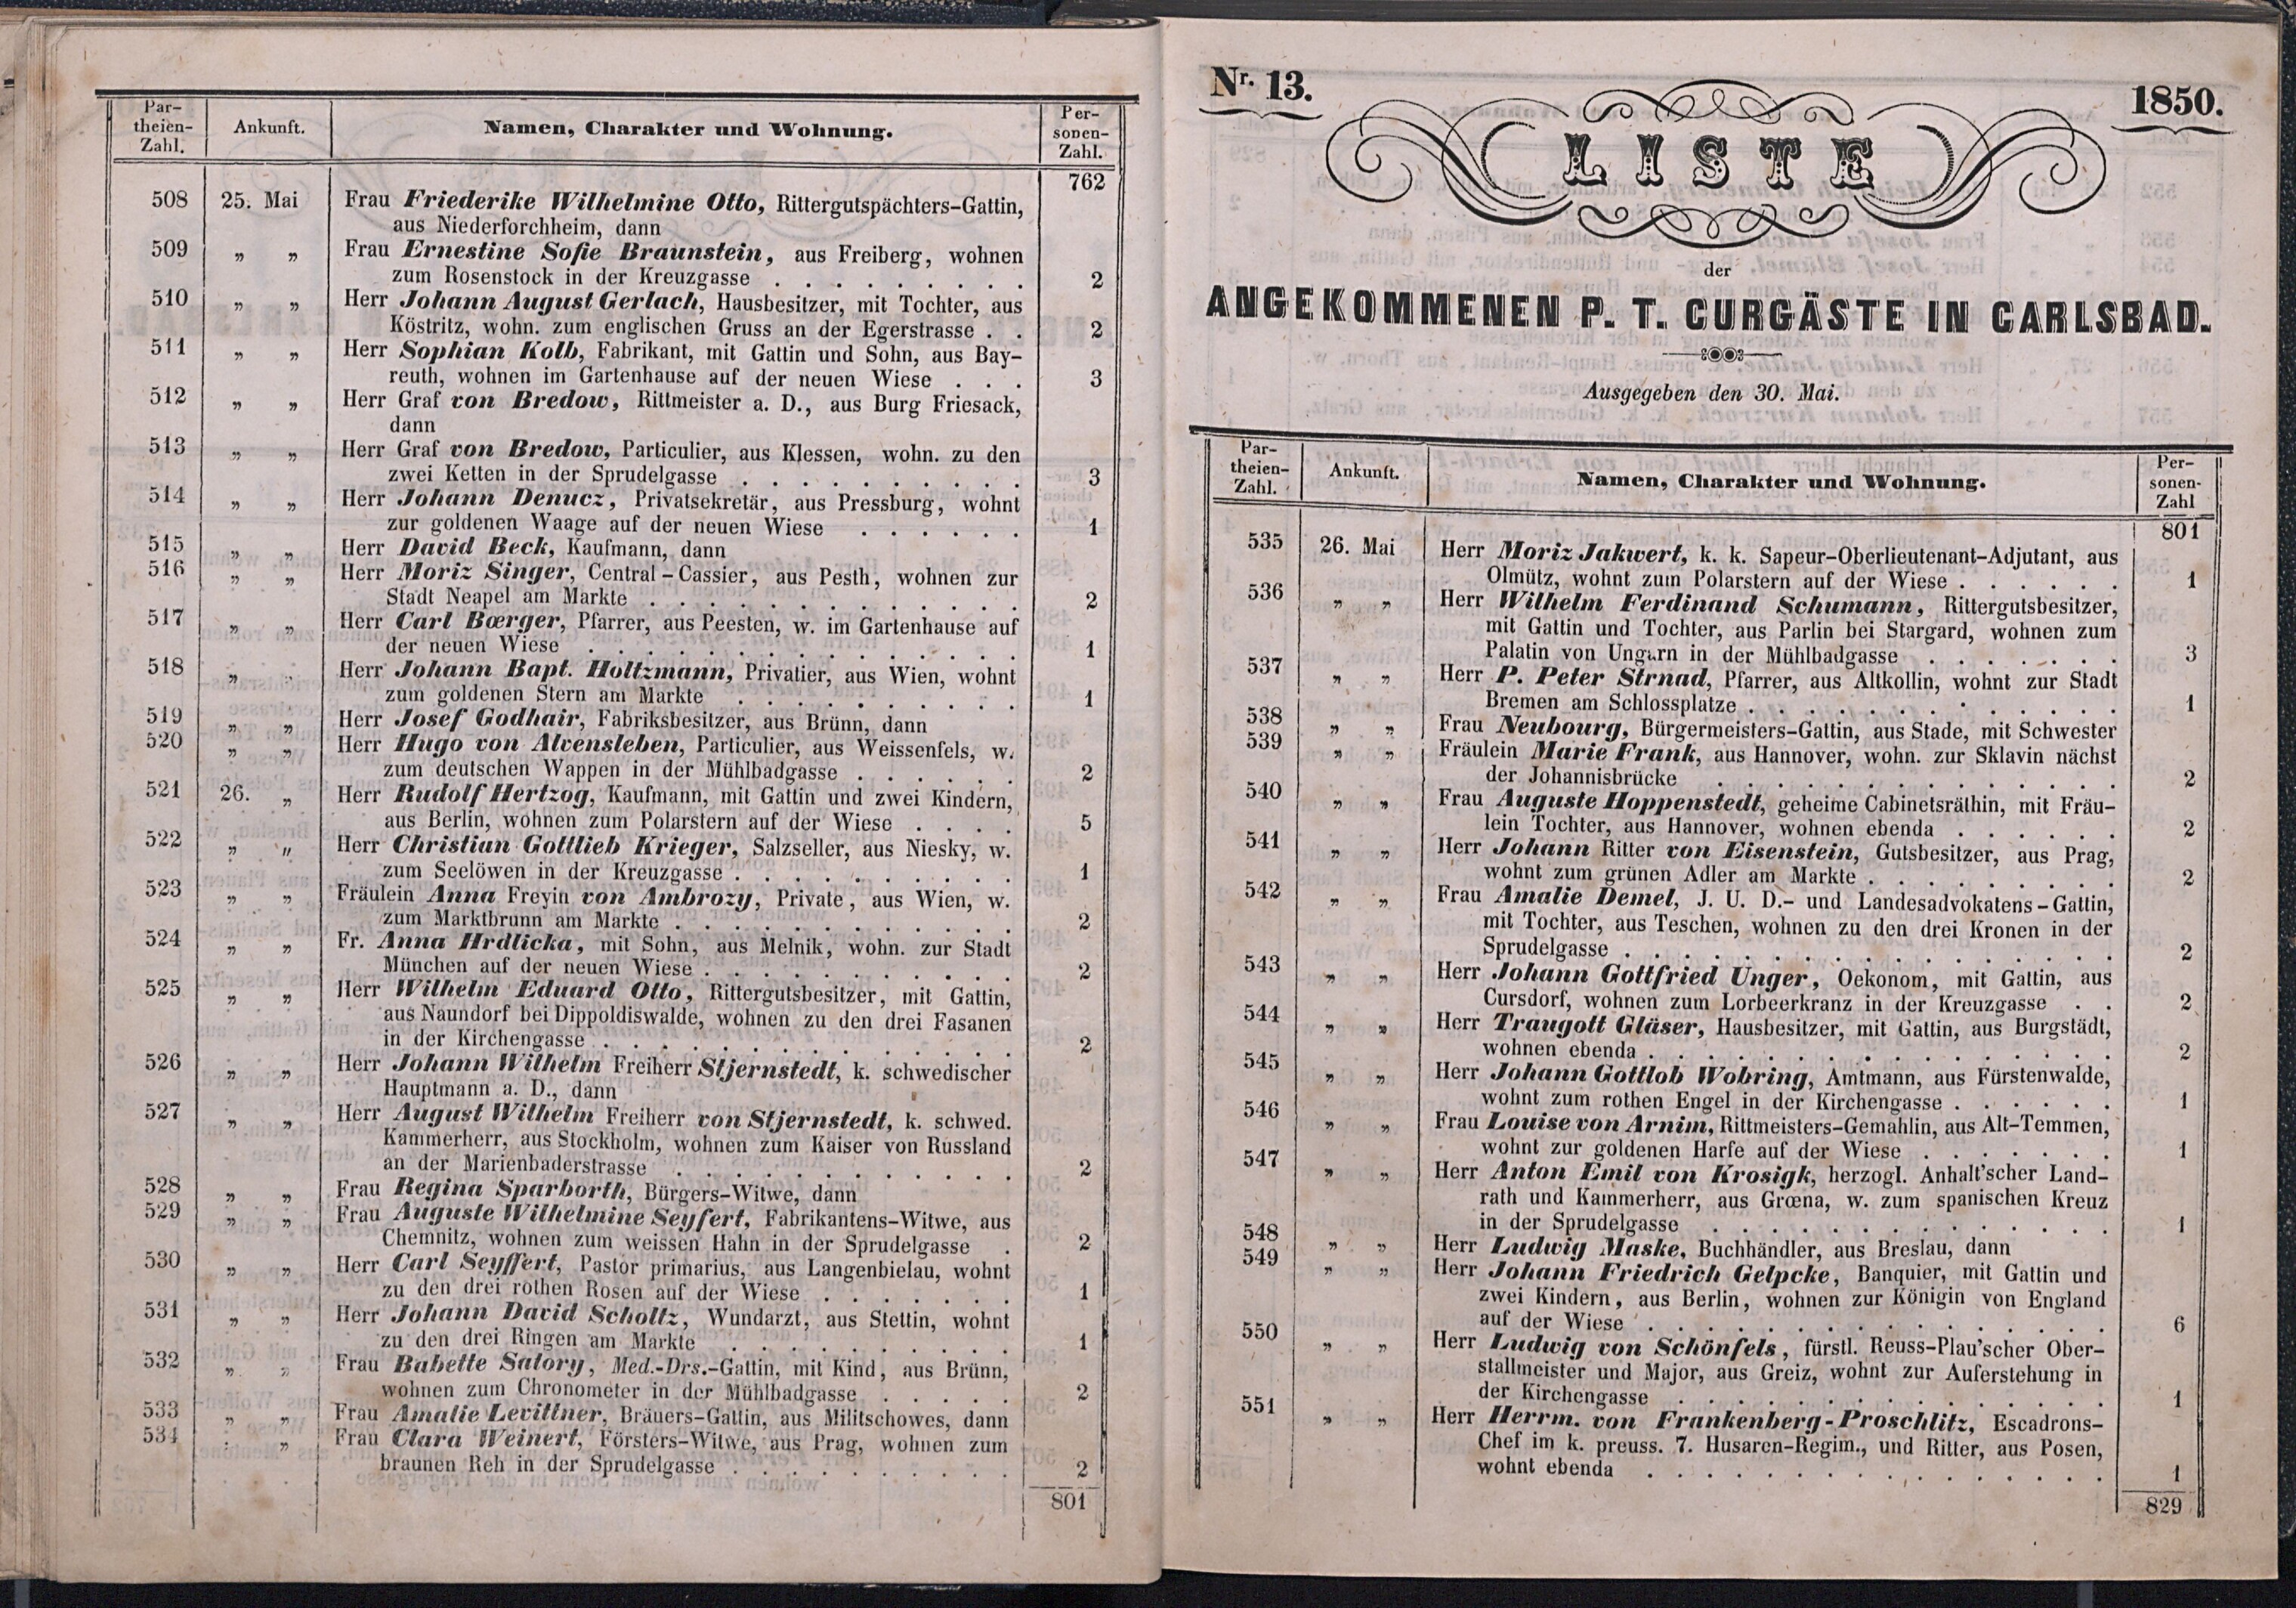 Par-
theien-
Zahl.
Ankunft.
Namen, Charakter und Wohnung.
Per-
sonen-
Zahl.
762
508 25. Mai Frau Friederike Wilhelmine Otto, Rittergutspächters-Gattin,
aus Niederforchheim, dann
509 „ „ Frau Ernestine Sofie Braunstein, aus Freiberg, wohnen
zum Rosenstock in der Kreuzgasse . . . . . . . . . 2
510 „ „ Herr Johann August Gerlach, Hausbesitzer, mit Tochter, aus
Köstritz, wohn. zum englischen Gruss an der Egerstrasse . . 2
511 „ „ Herr Sophian Kolb, Fabrikant, mit Gattin und Sohn, aus Bay-
reuth, wohnen im Gartenhause auf der neuen Wiese . . . 3
512 „ „ Herr Graf von Bredow, Rittmeister a. D., aus Burg Friesack,
dann
513 „ „ Herr Graf von Bredow, Particulier, aus Klessen, wohn. zu den
zwei Ketten in der Sprudelgasse . . . . . . . . . 3
514 „ „ Herr Johann Denucz, Privatsekretär, aus Pressburg, wohnt
zur goldenen Waage auf der neuen Wiese . . . . . . 1
515 „ „ Herr David Beck, Kaufmann, dann
516 „ „ Herr Moriz Singer, Central-Cassier, aus Pesth, wohnen zur
Stadt Neapel am Markte . . . . . . . . . . . . 2
517 „ „ Herr Carl Bœrger, Pfarrer, aus Peesten, w. im Gartenhause auf
der neuen Wiese . . . . . . . . . . . . . . 1
518 „ „ Herr Johann Bapt. Holtzmann, Privatier, aus Wien, wohnt
zum goldenen Stern am Markte . . . . . . . . . . 1
519 „ „ Herr Josef Godhair, Fabriksbesitzer, aus Brünn, dann
520 „ „ Herr Hugo von Alvensleben, Particulier, aus Weissenfels, w.
zum deutschen Wappen in der Mühlbadgasse . . . . . . 2
521 26. „ Herr Rudolf Hertzog, Kaufmann, mit Gattin und zwei Kindern,
aus Berlin, wohnen zum Polarstern auf der Wiese . . . . 5
522 „ „ Herr Christian Gottlieb Krieger, Salzseller, aus Niesky, w.
zum Seelöwen in der Kreuzgasse . . . . . . . . . 1
523 „ „ Fräulein Anna Freyin von Ambrozy, Private, aus Wien, w.
zum Marktbrunn am Markte . . . . . . . . . . . 2
524 „ „ Fr. Anna Hrdlicka, mit Sohn, aus Melnik, wohn. zur Stadt
München auf der neuen Wiese . . . . . . . . . . 2
525 „ „ Herr Wilhelm Eduard Otto, Rittergutsbesitzer, mit Gattin,
aus Naundorf bei Dippoldiswalde, wohnen zu den drei Fasanen
in der Kirchengasse . . . . . . . . . . . . . 2
526 „ „ Herr Johann Wilhelm Freiherr Stjernstedt, k. schwedischer
Hauptmann a. D., dann
527 „ „ Herr August Wilhelm Freiherr von Stjernstedt, k. schwed.
Kammerherr, aus Stockholm, wohnen zum Kaiser von Russland
an der Marienbaderstrasse . . . . . . . . . . . 2
528 „ „ Frau Regina Sparborth, Bürgers-Witwe, dann
529 „ „ Frau Auguste Wilhelmine Seyfert, Fabrikantens-Witwe, aus
Chemnitz, wohnen zum weissen Hahn in der Sprudelgasse . 2
530 „ „ Herr Carl Seyffert, Pastor primarius, aus Langenbielau, wohnt
zu den drei rothen Rosen auf der Wiese . . . . . . . 1
531 „ „ Herr Johann David Scholtz, Wundarzt, aus Stettin, wohnt
zu den drei Ringen am Markte . . . . . . . . . . 1
532 „ „ Frau Babette Satory, Med.-Drs.-Gattin, mit Kind, aus Brünn,
wohnen zum Chronometer in der Mühlbadgasse . . . . . 2
533 „ „ Frau Amalie Levittner, Bräuers-Gattin, aus Militschowes, dann
534 „ „ Frau Clara Weinert, Försters-Witwe, aus Prag, wohnen zum
braunen Reh in der Sprudelgasse . . . . . . . . . . 2
801
Nr. 13.
1850.
LISTE
der
ANGEKOMMENEN P. T. CURGÄSTE IN CARLSBAD.
Ausgegeben den 30. Mai.
Par-
theien-
Zahl.
Ankunft.
Namen, Charakter und Wohnung.
Per-
sonen-
Zahl
801
535 26. Mai Herr Moriz Jakwert, k. k. Sapeur-Oberlieutenant-Adjutant, aus
Olmütz, wohnt zum Polarstern auf der Wiese . . . . . . 1
536 „ „ Herr Wilhelm Ferdinand Schumann, Rittergutsbesitzer,
mit Gattin und Tochter, aus Parlin bei Stargard, wohnen zum
Palatin von Ungarn in der Mühlbadgasse . . . . . . . 3
537 „ „ Herr P. Peter Strnad, Pfarrer, aus Altkollin, wohnt zur Stadt
Bremen am Schlossplatze . . . . . . . . . . . . 1
538 „ „ Frau Neubourg, Bürgermeisters-Gattin, aus Stade, mit Schwester
539 „ „ Fräulein Marie Frank, aus Hannover, wohn. zur Sklavin nächst
der Johannisbrücke . . . . . . . . . . . . . 2
540 „ „ Frau Auguste Hoppenstedt, geheime Cabinetsräthin, mit Fräu-
lein Tochter, aus Hannover, wohnen ebenda . . . . . . 2
541 „ „ Herr Johann Ritter von Eisenstein, Gutsbesitzer, aus Prag,
wohnt zum grünen Adler am Markte . . . . . . . . 2
542 „ „ Frau Amalie Demel, J. U. D.- und Landesadvokatens-Gattin,
mit Tochter, aus Teschen, wohnen zu den drei Kronen in der
Sprudelgasse . . . . . . . . . . . . . . . . 2
543 „ „ Herr Johann Gottfried Unger, Oekonom, mit Gattin, aus
Cursdorf, wohnen zum Lorbeerkranz in der Kreuzgasse . . 2
544 „ „ Herr Traugott Gläser, Hausbesitzer, mit Gattin, aus Burgstädt,
wohnen ebenda . . . . . . . . . . . . . . . 2
545 „ „ Herr Johann Gottlob Wobring, Amtmann, aus Fürstenwalde,
wohnt zum rothen Engel in der Kirchengasse . . . . . . 1
546 „ „ Frau Louise von Arnim, Rittmeisters-Gemahlin, aus Alt-Temmen,
wohnt zur goldenen Harfe auf der Wiese . . . . . . . 1
547 „ „ Herr Anton Emil von Krosigk, herzogl. Anhalt'scher Land-
rath und Kammerherr, aus Grœna, w. zum spanischen Kreuz
in der Sprudelgasse . . . . . . . . . . . . . 1
548 „ „ Herr Ludwig Maske, Buchhändler, aus Breslau, dann
549 „ „ Herr Johann Friedrich Gelpcke, Banquier, mit Gattin und
zwei Kindern, aus Berlin, wohnen zur Königin von England
auf der Wiese . . . . . . . . . . . . . . . 6
550 „ „ Herr Ludwig von Schönfels, fürstl. Reuss-Plau'scher Ober-
stallmeister und Major, aus Greiz, wohnt zur Auferstehung in
der Kirchengasse . . . . . . . . . . . . . . 1
551 „ „ Herr Herrm. von Frankenberg-Proschlitz, Escadrons-
Chef im k. preuss. 7. Husaren-Regim., und Ritter, aus Posen,
wohnt ebenda . . . . . . . . . . . . . . . 1
829